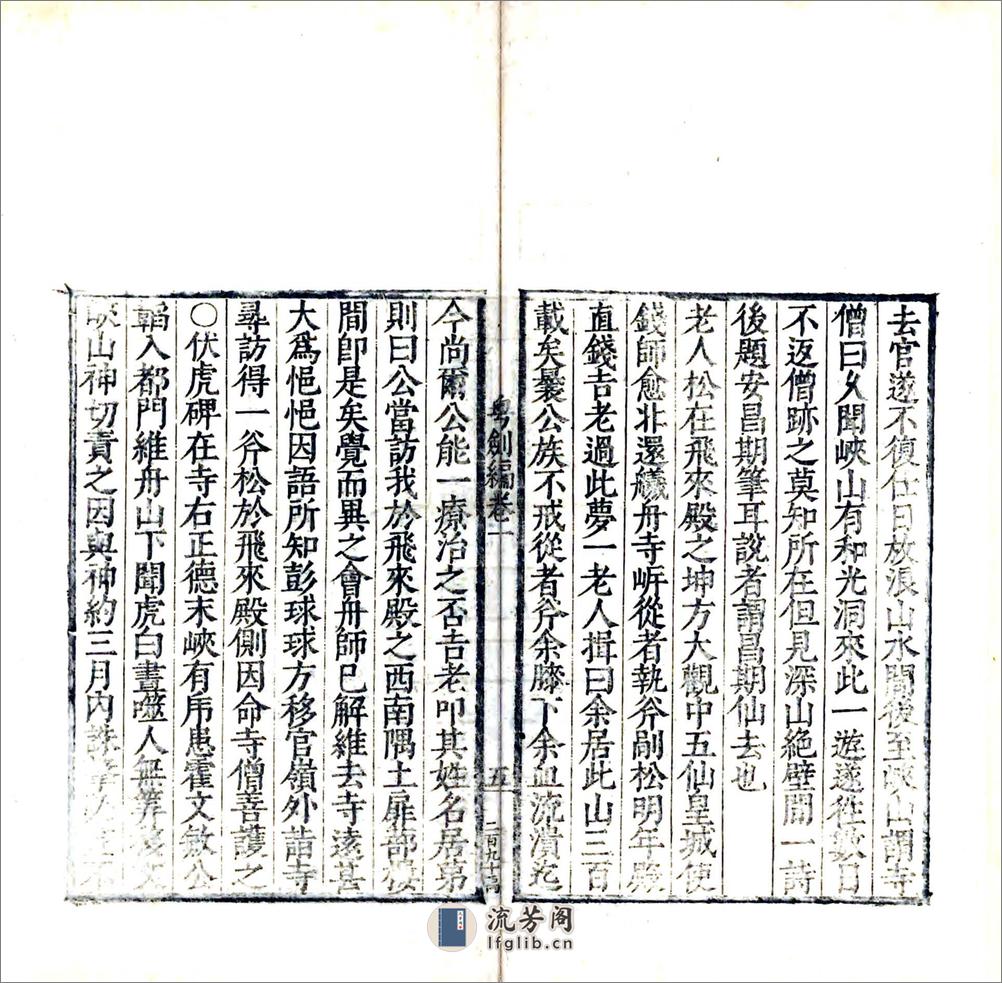 去官遂不復仕日放浪山水間後至峽山謂寺
僧曰久聞峽山有和光洞來此一遊遂徃數日
不返僧跡之莫知所在但見深山絶壁間一詩
後題安昌期筆耳說者謂昌期仙去也
老人松在飛來殿之坤方大觀中五仙皇城使
錢師愈北還艤舟寺岍從者執斧剮松明年殿
直錢吉老過此夢一老人揖曰余居此山三百
載矣曩公族不戒從者斧余膝下余血流潰迄
粤劍編卷一
五
二百九十四
今尚爾公能一療治之否吉老叩其姓名居第
則曰公當訪我於飛來殿之西南隅土扉蔀樓
間卽是矣覺而異之會舟師已解維去寺遠甚
大爲悒悒因語所知彭球球方移官嶺外詣寺
尋訪得一斧松於飛來殿側因命寺僧善護之
○伏虎碑在寺右正德末峽有乕患霍文敏公
韜入都門維舟山下聞虎白晝噬人無筭後文
峽山神切責之因與神約三月內誅